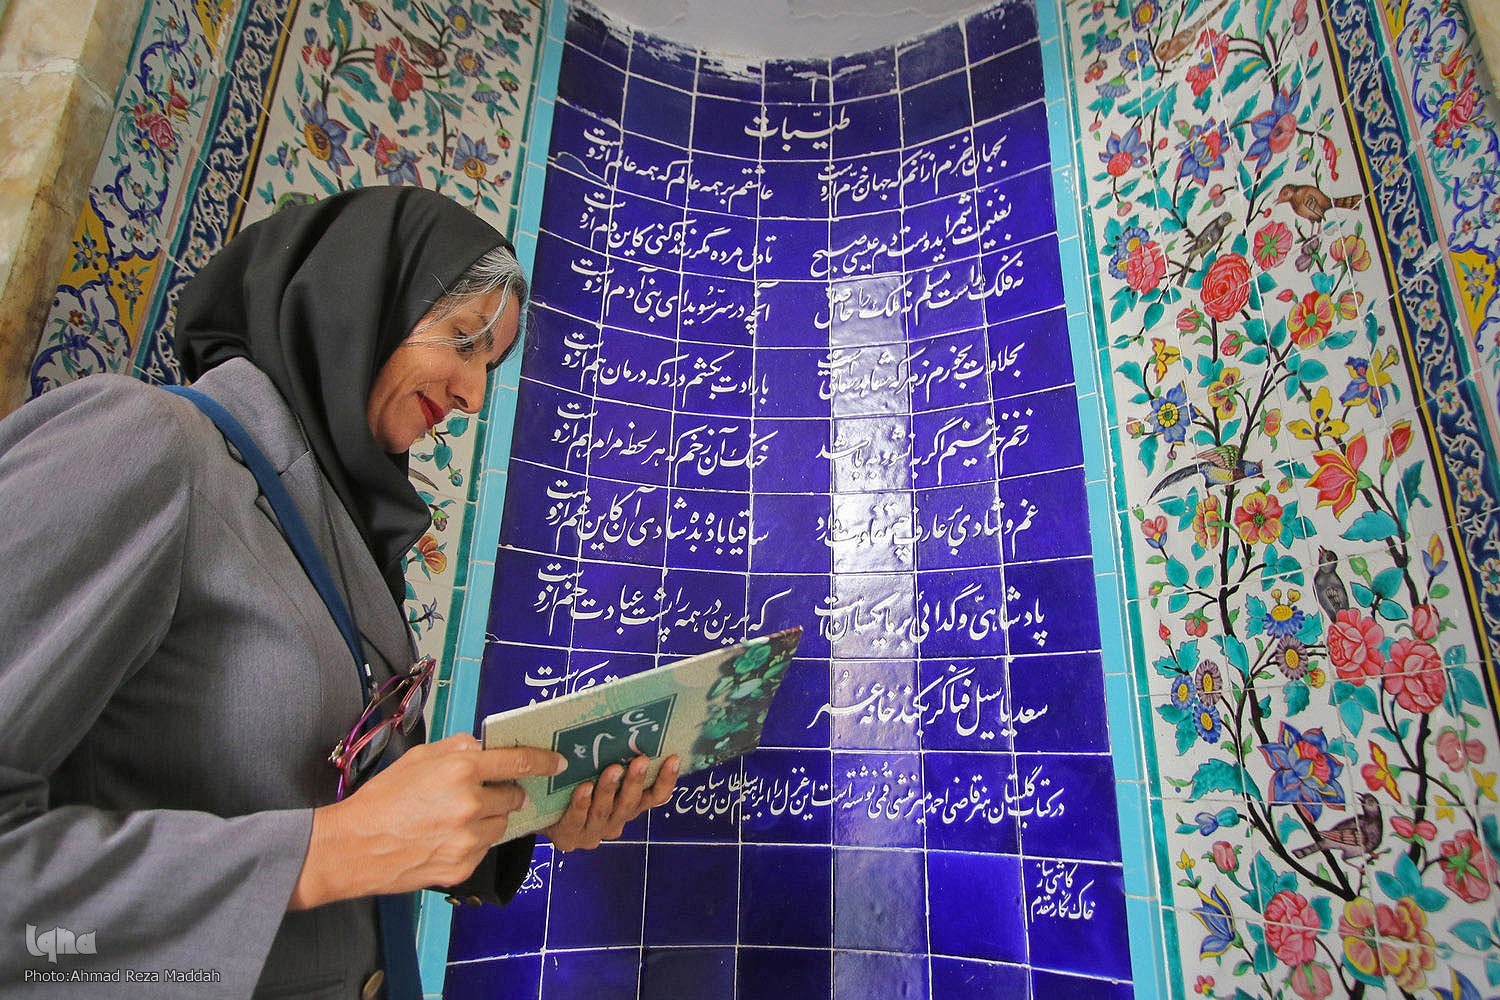 طیّبات
بجهان خرّم از آنم که جهان خرّم ازوست عاشقم بر همه عالم که همه عالم ازوست
بغنیمت شمر ایدوست دم عیسی صبح تا دل مرده مگر زنده کنی کاین دم ازوست
نه فلک راست مسلم نه ملک را حاصل آنچه در سرّ سُویدای بنی آدم ازوست
بحلاوت بخورم زهر که شاهد ساقیست بارادت بکشم درد که درمان هم ازوست
زخم خونینم اگر به نشود به باشد خنک آن زخم که هر لحظه مرا مرهم ازوست
غم و شادی بر عارف چه تفاوت دارد ساقیا باده بده شادی آن کاین غم ازوست
پادشاهیّ و گدائی بر ما یکسان است که برین در همه را پشت عبادت خم ازوست
سعدیا سیل فنا گر بکند خانهٔ عمُر
در کتاب گلستان هنر قاضی احمد میر منشی قمی نوشته است این غزل را ابراهیم سلطان بن شاهرخ
کاشی ساز
خاک نگار مقدم
iqna
Photo:Ahmad Reza Maddah